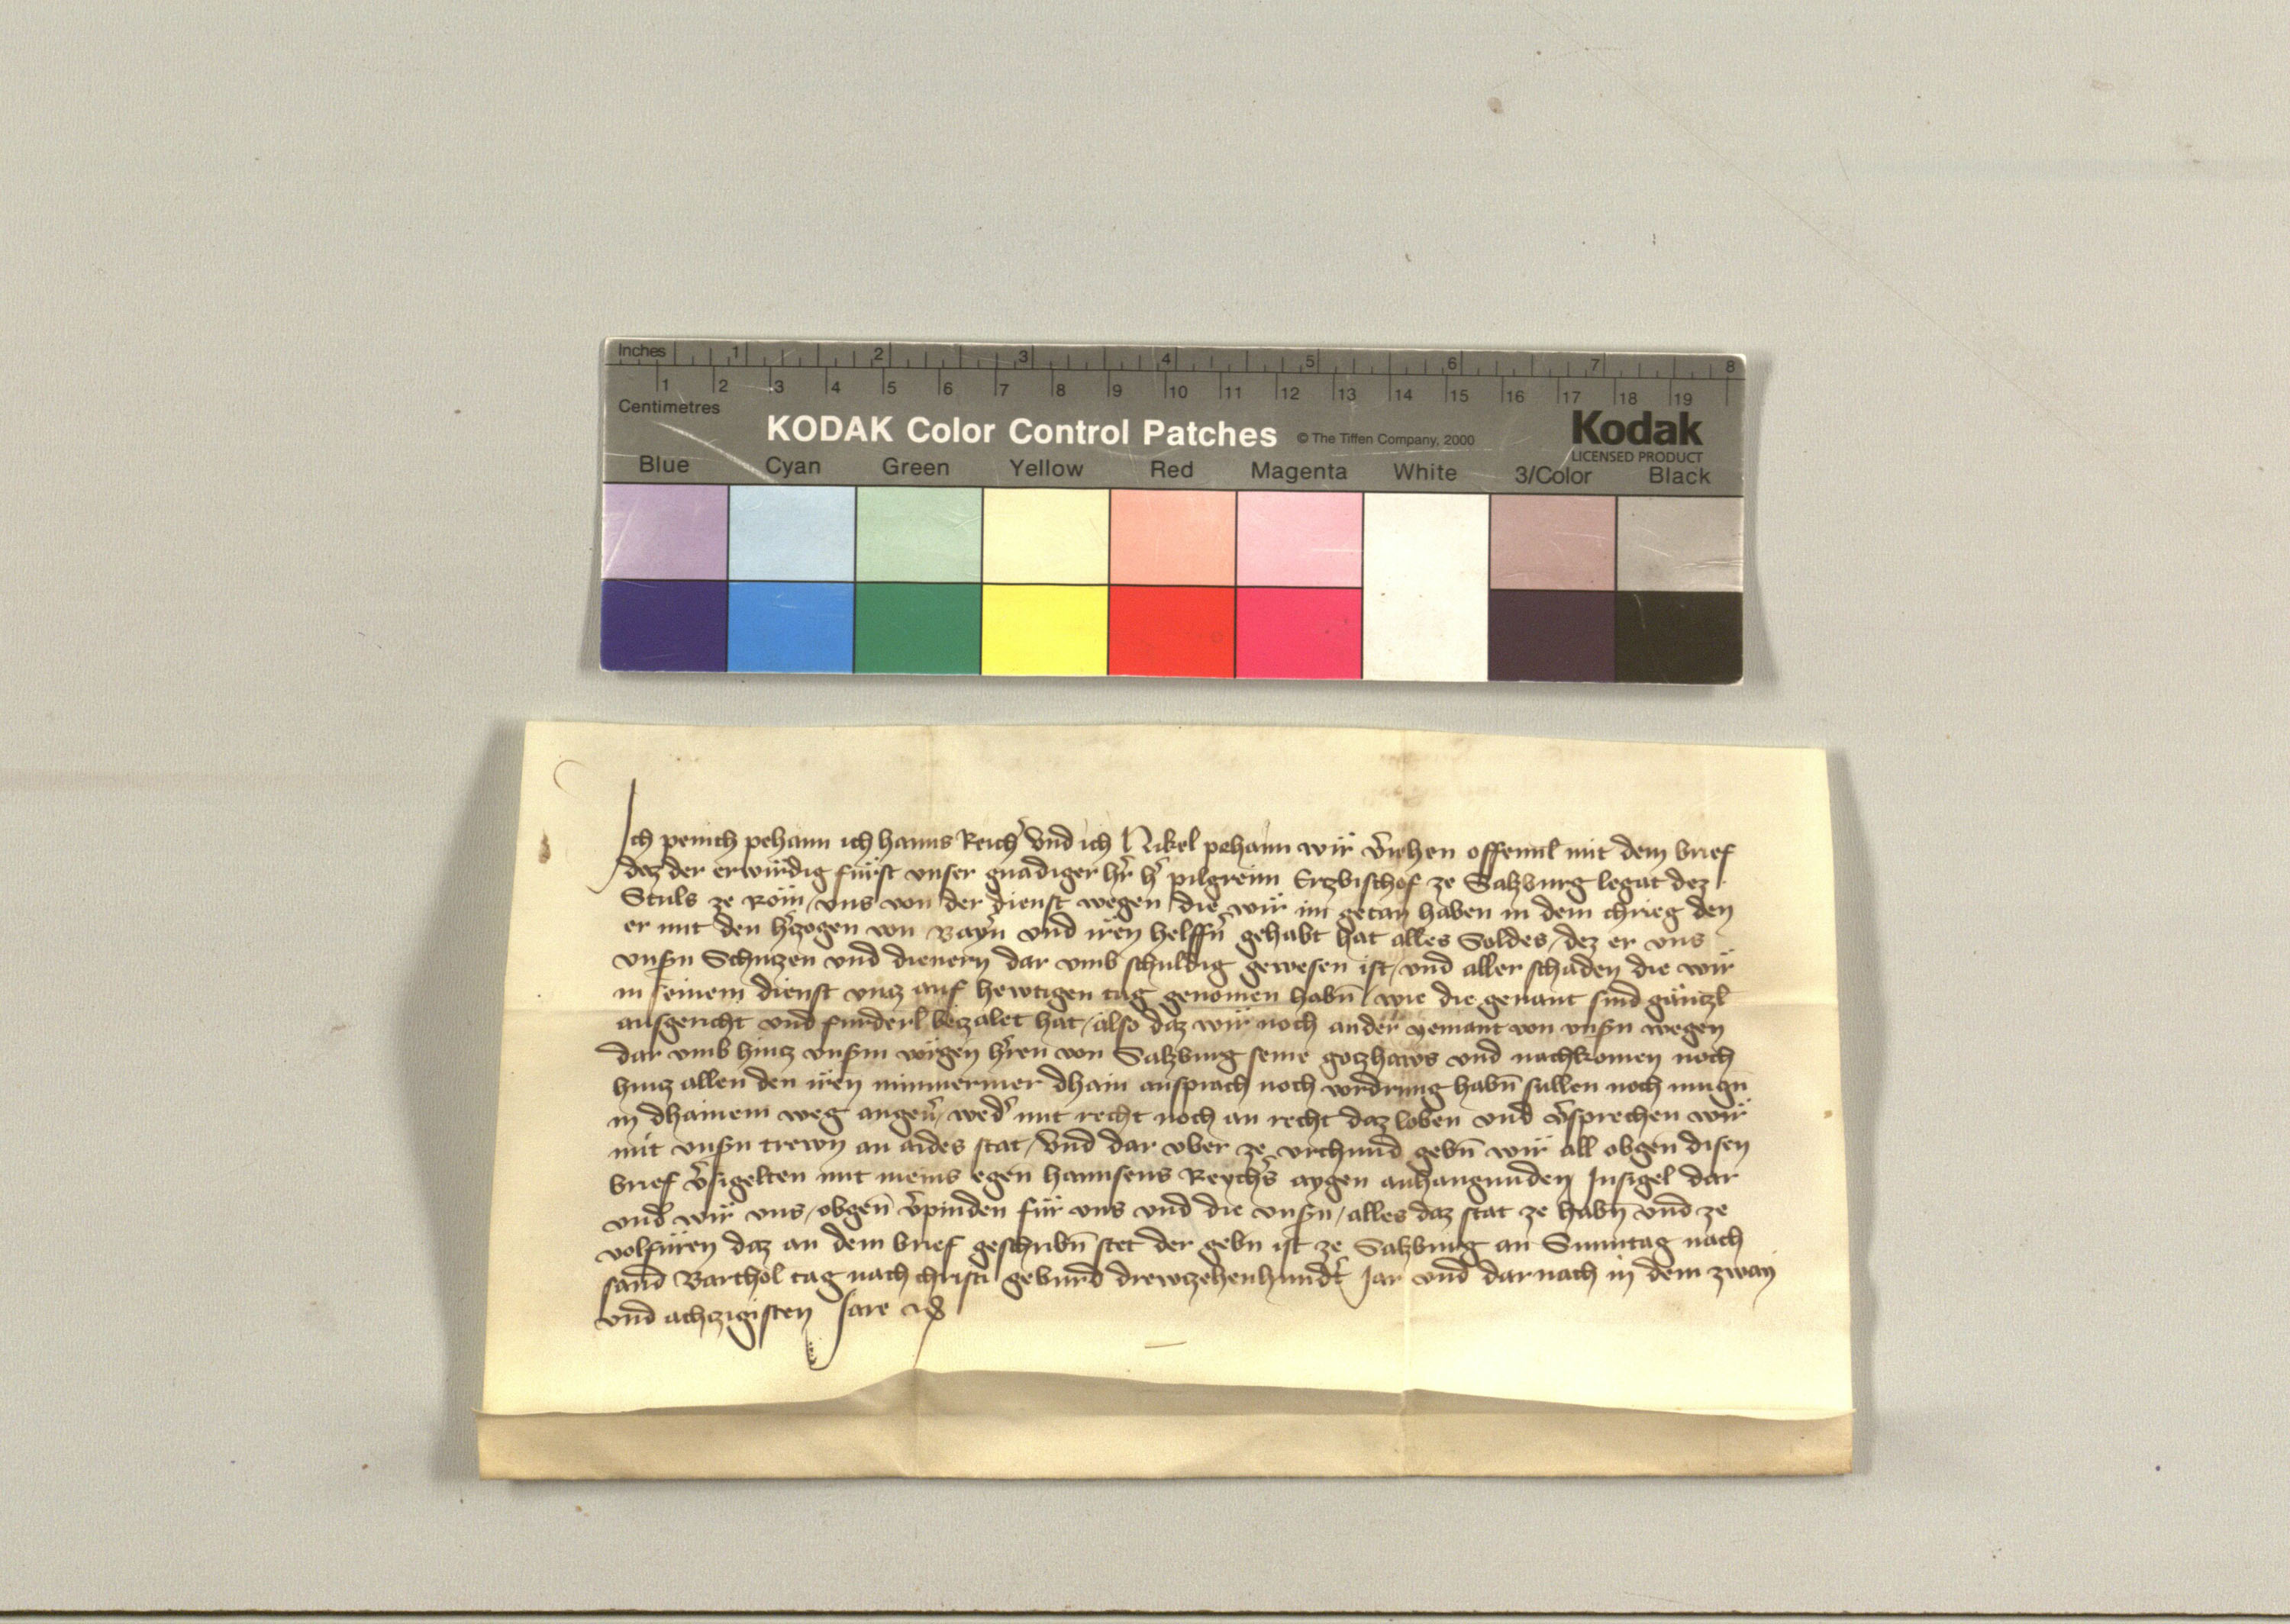 Inches 1 2 3 4 5 6 7 8
1 2 3 4 5 6 7 8 9 10 11 12 13 14 15 16 17 18 19
Centimetres
KODAK Color Control Patches © The Tiffen Company, 2000 Kodak
LICENSED PRODUCT
Blue Cyan Green Yellow Red Magenta White 3/Color Black
Ich pehann ich hanns Reichˀ Vnd ich Nikel pehann wir v̂iehen offennl mit dem brief
daz der erwirdig fürst vnser gnädiger hˀr hˀ pilgreim Erzbischof ze Salzburg legat dez
Stuls ze Röm / vns von der dienst wegen die wir im getan haben in dem chrieg den
er mit den hˀzogen von Bayˀn vnd iren helffˀn gehabt hat alles Soldes / dez er vns
vnsˀn Schuzen vnd dienern dar vmb schuldig gewesen ist / vnd aller schäden die wir
in seinem dienst vnz auf hewtigen tag genomen habn̄ / wie die genant sind gäntzl
ausgericht vnd furderl bezalet hat / also daz wir noch ander yemant von vnsˀn wegen
dar vmb hintz vnsˀm hˀren von Salzburg seinē gotzhaws vnd nachkomen noch
hintz allen den iren nimmermer dhain ansprach noch vordrung habn̄ sullen noch mugn̄
in dhainem weg / wedˀ mit recht noch an recht daz loben vnd vˀsprechen wir
mit vnsˀn trewn an aides stat / Vnd dar vber ze vrchund gebn̄ wir all obgen̄ disen
brief vˀsigelten mit meins egen̄ hannsens Reychˀs aygen anhangunden Insigel dar
vndˀ wir vns / obgen̄ vˀpinden für vns vnd die vnsˀn / alles daz stät ze habn̄ vnd ze
volfüren daz an dem brief geschribn̄ stet der gebn ist ze Salzburg an Sunntag nach
sand Barthol tag nach christi gebürd drewzehenhundˀt Jar vnd darnach in dem zway
vnd achzigisten Jare